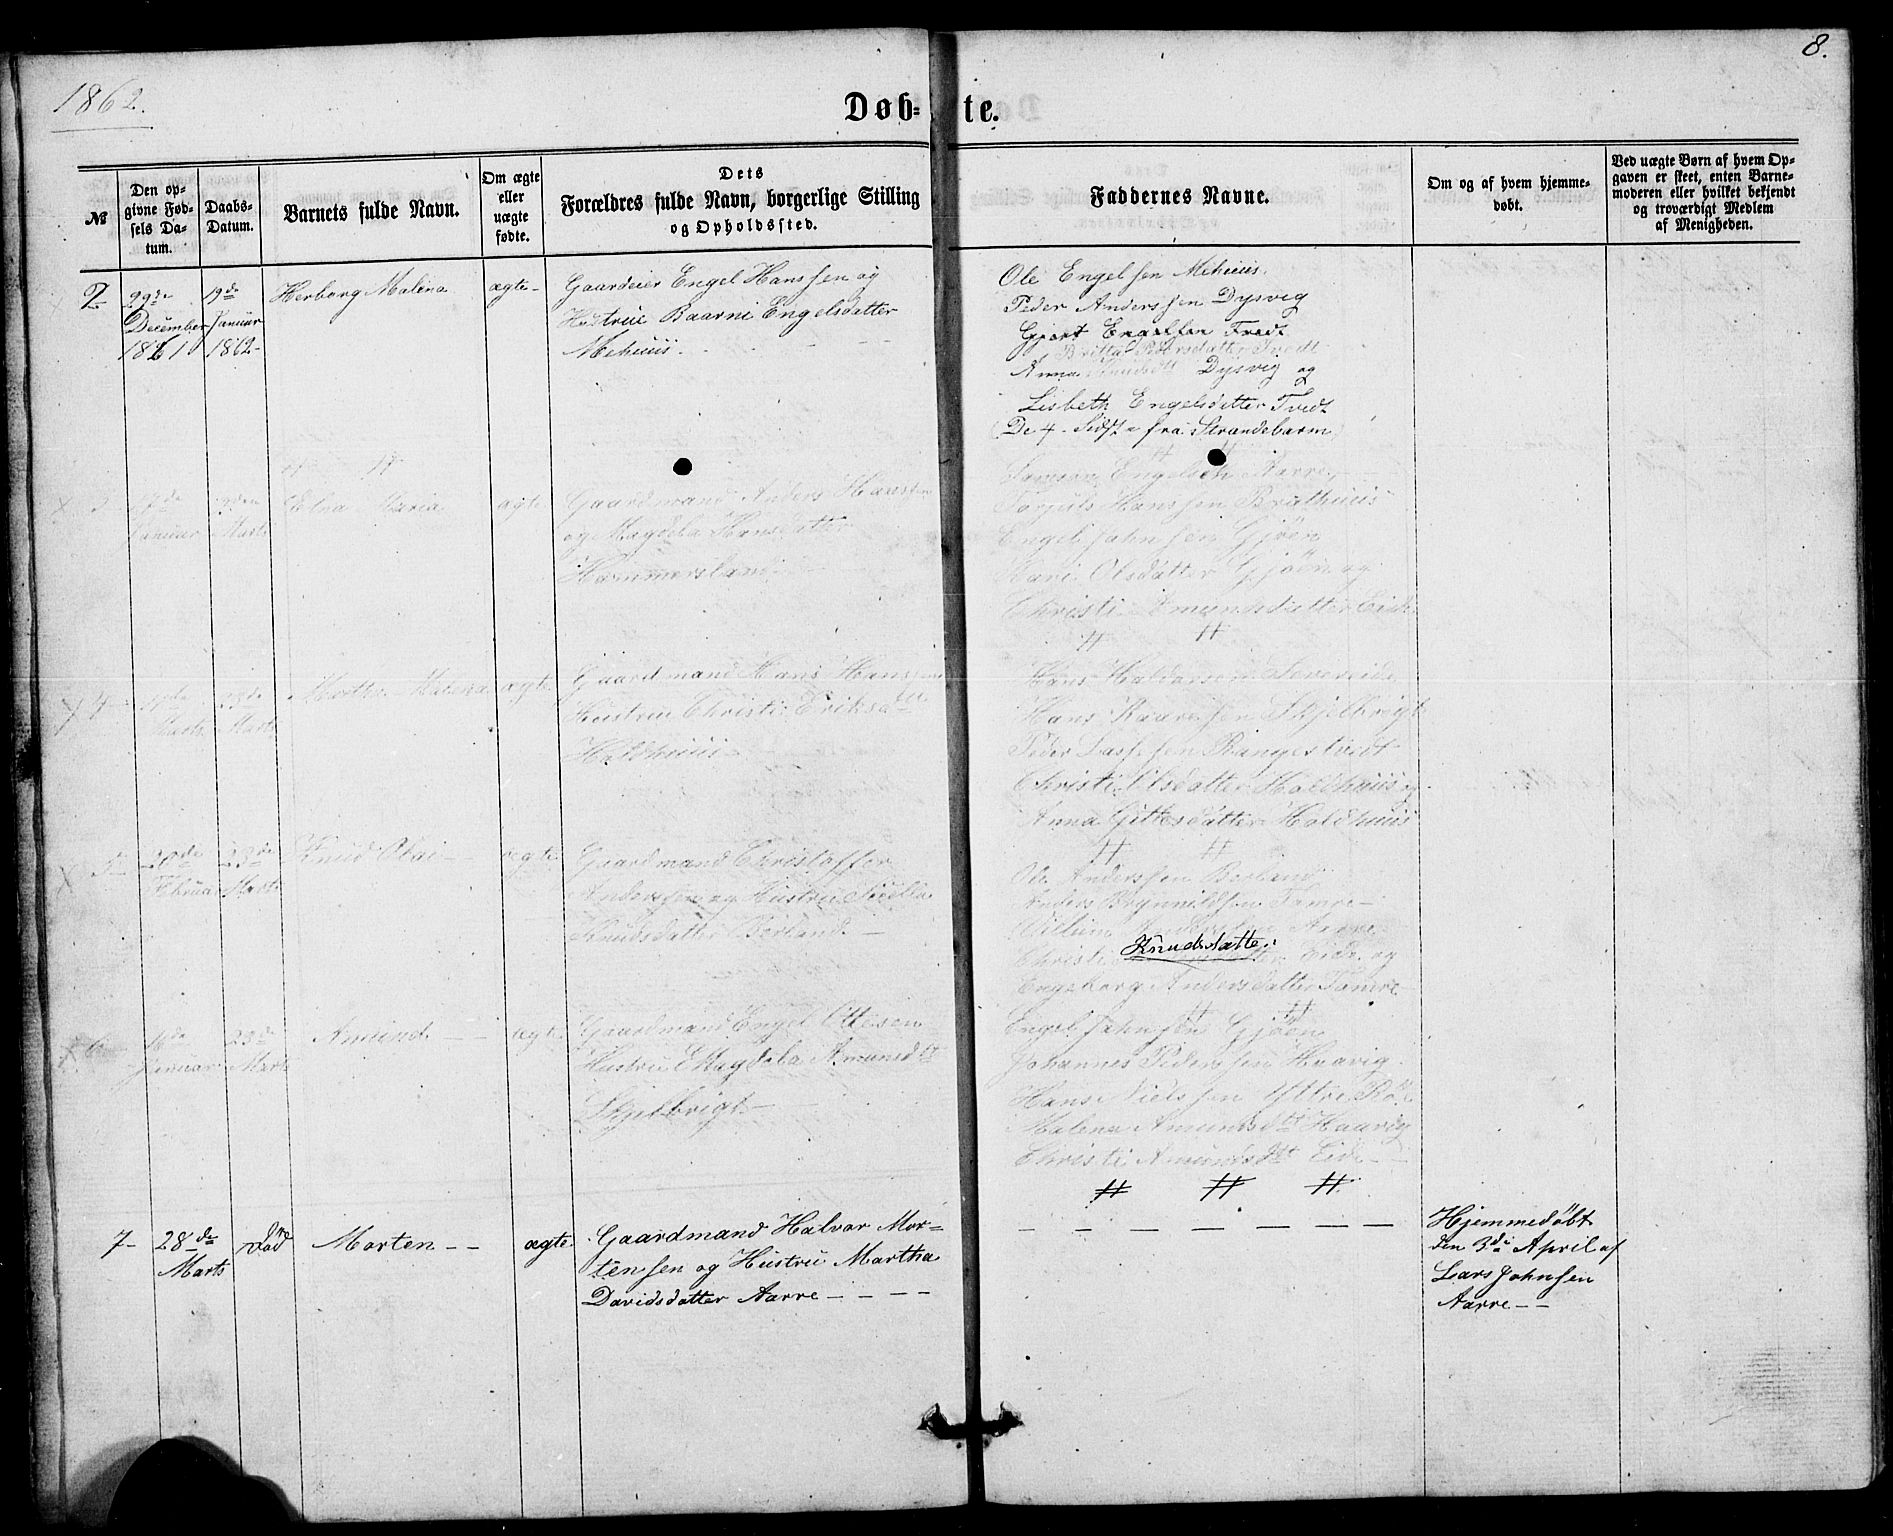 1862.
8.
Døb-
te.
№
Den op-
givne Fød-
sels Da-
tum.
Daabs-
Datum.
Barnets fulde Navn.
Om ægte
eller
uægte
fødte.
Dets
Forældres fulde Navn, borgerlige Stilling
og Opholdssted.
Faddernes Navne.
Om og af hvem hjemme-
døbt.
Ved uægte Børn af hvem Op-
gaven er skeet, enten Barne-
moderen eller hvilket bekjendt
og troværdigt Medlem
af Menigheden.
2
29de
December
1861
19de
Januar
1862-
Herborg Malena
ægte-
Gaardeier Engel Hanssen og
Hustrue Baarni Engelsdatter
Mehuus.
Ole Engelsen Mehuus.
Peder Anderssen Dysvig
Gjert Engelsen Tvedt
Britta Pedersdatter Tvedt
Anna Knudsdtt Dysvig og
Lisbeth Engelsdatter Tvedt
(De 4 Sidste fra Strandebarm)
3
Januar
Marts
Elna Maria
ægte
Gaardmand Anders Hanssen
og Magdela Hansdatter
Hammersland
Samson Engelsen Aarre
Torjuls Hanssen Brathuus
Engel Johnsen Gjøen
Kari Olsdatter Gjøen og
Christi Amundsdatter Eide
4
Marts
23de
Marts
Malena
ægte
Gaardmand Hans Hanssen
Hustrue Christi Eriksdtt
Holdhuus
Hans Haldorsen Sævereide
Hans Kaaressen Skjelbreigt
Peder Lassesen Rangestvedt
Christi Olsdatter Holdhuus og
Anna Gittesdatter Holdhuus
5
20de
Februar
23de
Marts
Knud Olai
ægte
Gaardmand Christoffer
Anderssen og Hustrue Siella
Knudsdatter Berland
Ole Anderssen Berland
Anders Brynnildsen Tamre
Villum Aarre
Christi Knudsdatter Eide og
Engeborg Andersdatter Tamre
6
16de
Januar
23de
Marts
Amund
ægte
Gaardmand Engel Ottesen
Hustrue Magdela Amunsdtt
Skjelbreigt
Engel Johnsen Gjøen
Johannes Pederssen Haavig
Hans Nielssen Yttre
Malena Amundsdtt Haavig
Christi Amundsdtt Eide
7-
28de
Marts
død
Morten
ægte
Gaardmand Halvar Mor=
tenssen og Hustrue Martha
Davidsdatter Aarre
Hjemmedøbt
den 3de April af
Lars Johnsen
Aarre